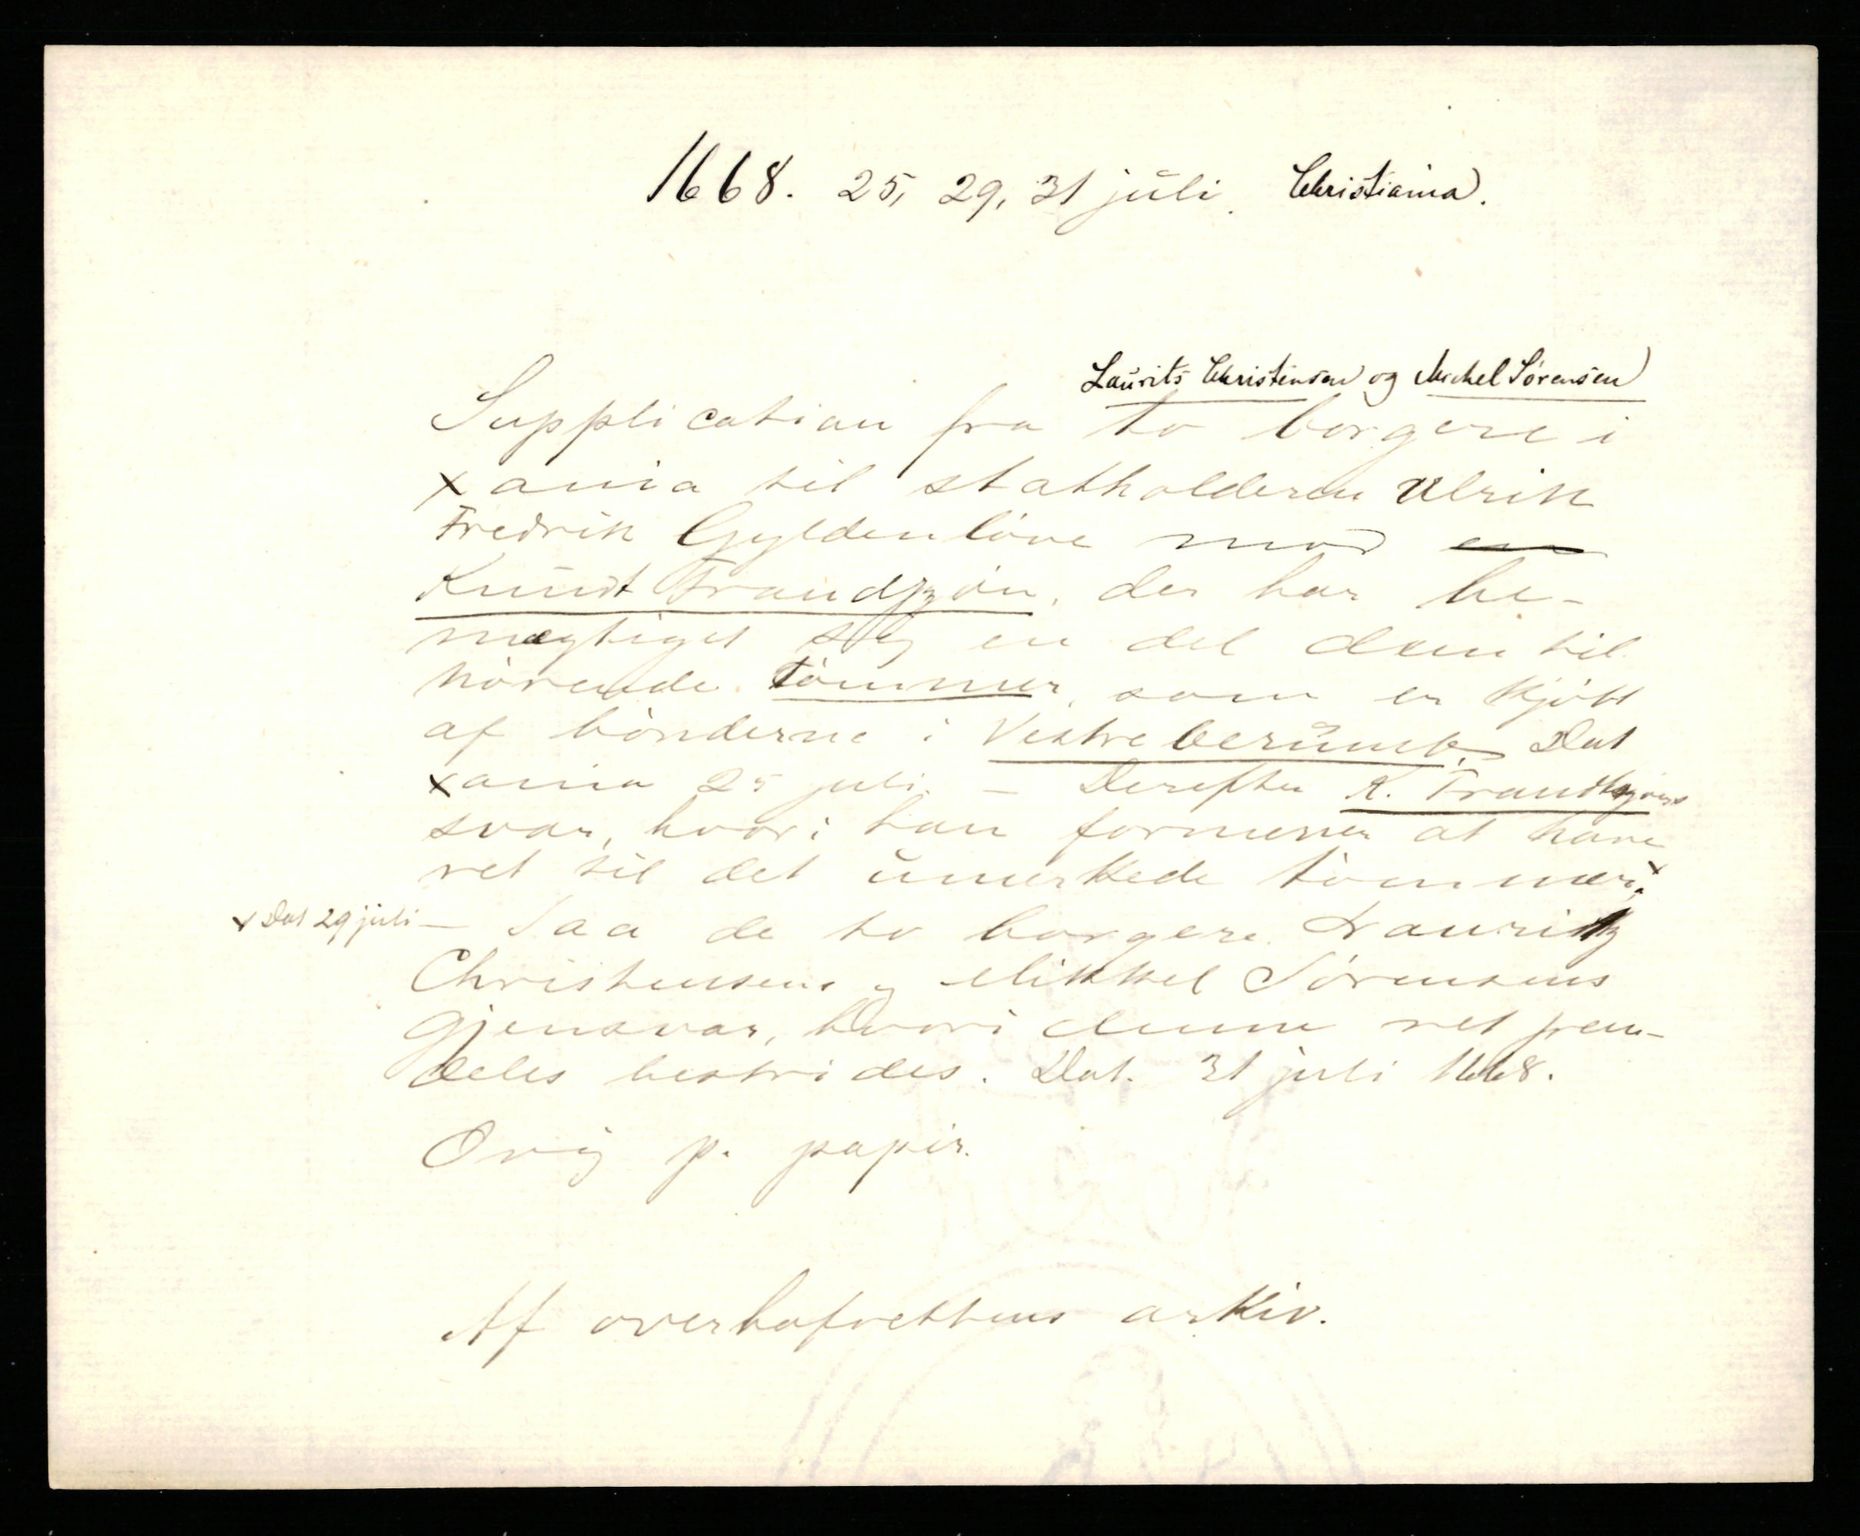 1668. 25, 29, 31 juli. Christiania.
Laurits Christensen og Mickel Sørensen
Supplication fra to borgere i
xania til statholderen Ulrik
Fredrik Gyldenløve mod en
Knudt Frandzøn, der har be-
mægtiget sig en del dem til-
hörende tömmer, som er kjöbt
af bönderne i Vestre Dat
xania 25 juli. — Derefter K. Frandzøns
svar, hvori han formener at have
ret til det umerkede tömmer. x
x Dat 29 juli — Saa de to borgere Lauritz
Christensens og Mikkel Sørensens
gjensvar, hvori denne ret frem-
deles bestrides. Dat. 31 juli 1668.
Orig p. papir.
Af overhofrettens arkiv.